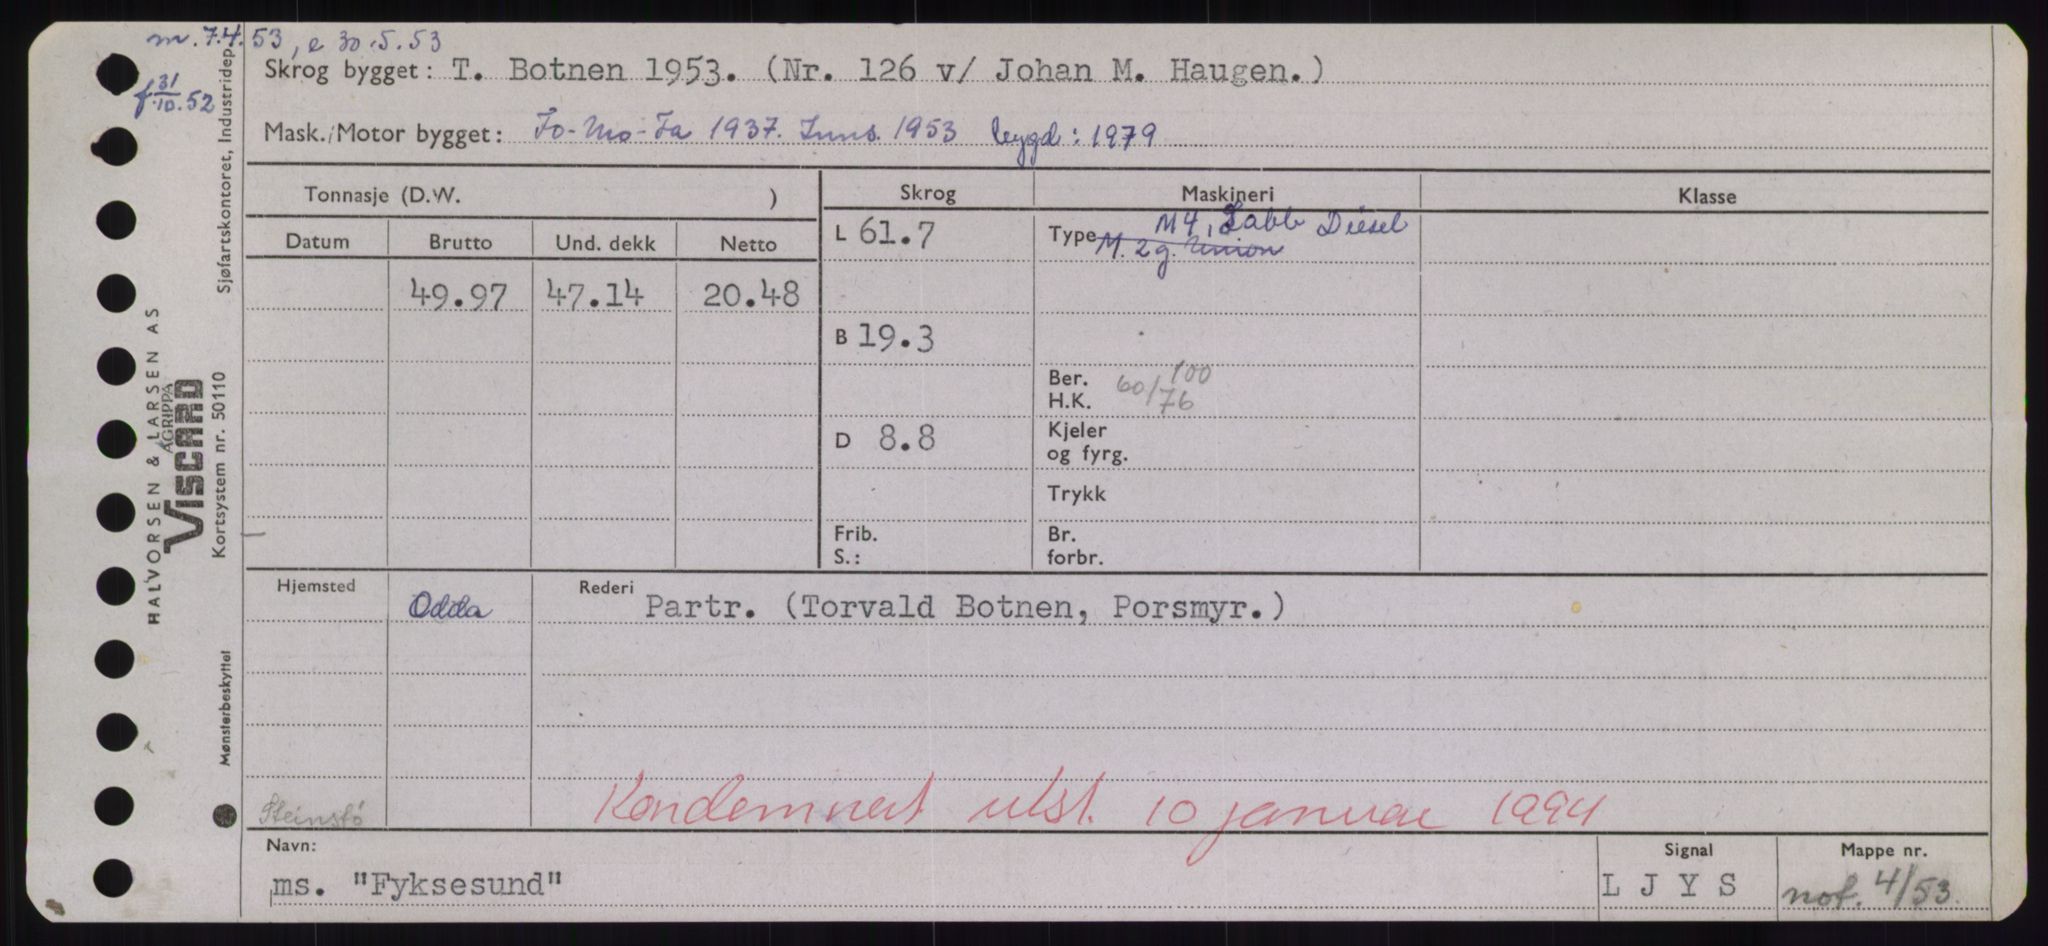 m. 7.4.53, e 30.5.53
f 31/10.52
Skrog bygget: T. Botnen 1953. (Nr. 126 v/ Johan M. Haugen.)
Mask./Motor bygget: Fo-Mo-Fa 1937. Inns. 1953 bygd: 1979
Tonnasje (D.W. )
Skrog
Maskineri
Klasse
Datum Brutto Und. dekk Netto
49.97 47.14 20.48
L 61.7
B 19.3
D 8.8
Frib.
S.:
Type M4, Sabb Diesel
M. 2 g. Union
Ber.
H.K. 60/76 100
Kjeler
og fyrg.
Trykk
Br.
forbr.
Hjemsted
Odda
Rederi
Partr. (Torvald Botnen, Porsmyr.)
Steinstø
Kondemnert utst. 10 januar 1994
Navn:
ms. "Fyksesund"
Signal
LJYS
Mappe nr.
not. 4/53.
Sjøfartskontoret, Industridep.
HALVORSEN & LARSEN AS
AGRIPPA
VISCARD
Kortsystem nr. 50110
Mønsterbeskyttet